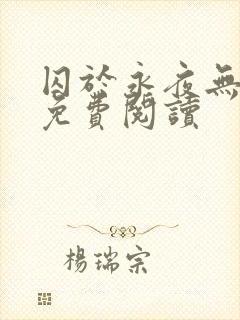 囚於永夜無
免費閱讀
楊瑞宗